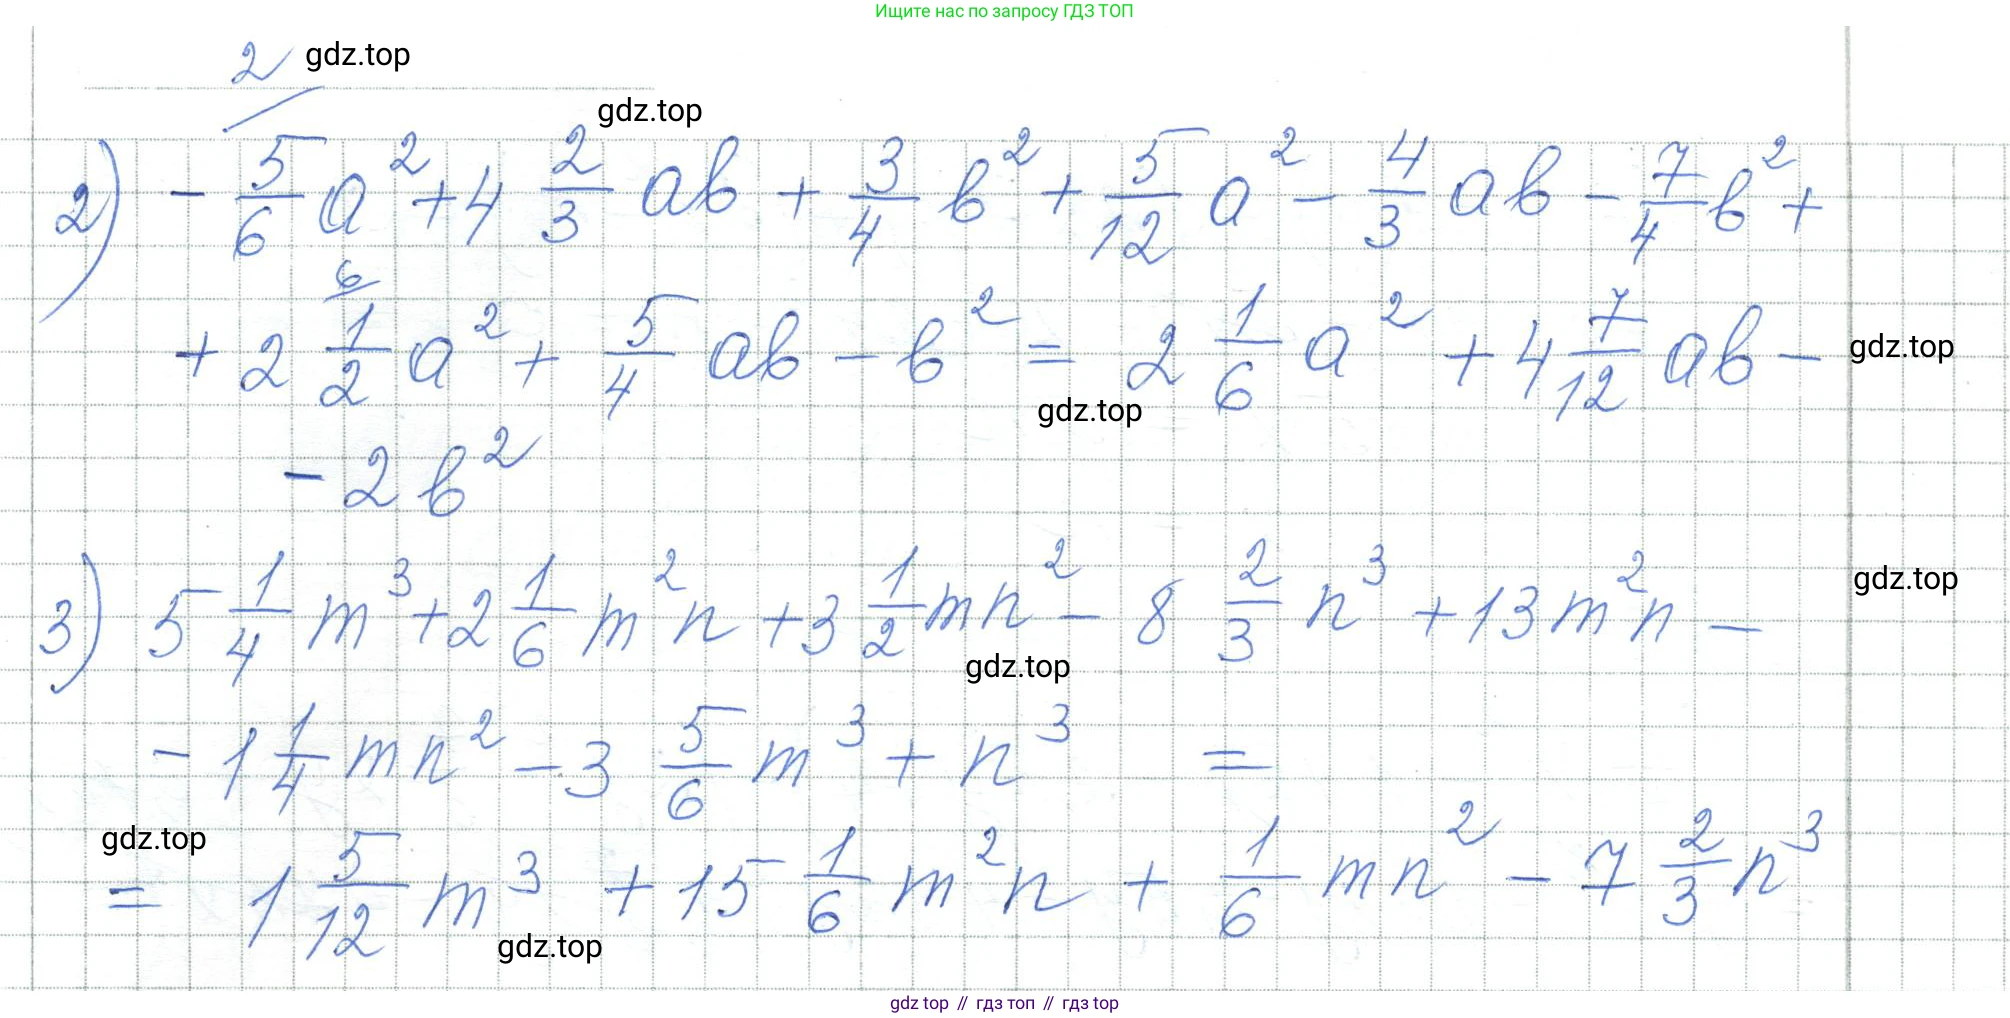 Ищите нас по запросу ГДЗ ТОП
2 gdz.top
gdz.top
2) - 5/6 a² + 4 2/3 ab + 3/4 b² + 5/12 a² - 4/3 ab - 7/4 b² +
6
+ 2 1/2 a² + 5/4 ab - b² = 2 1/6 a² + 4 7/12 ab - gdz.top
gdz.top
- 2b²
3) 5 1/4 m³ + 2 1/6 m²n + 3 1/2 mn² - 8 2/3 n³ + 13m²n - gdz.top
gdz.top
- 1 1/4 mn² - 3 5/6 m³ + n³ =
gdz.top
= 1 5/12 m³ + 15 1/6 m²n + 1/6 mn² - 7 2/3 n³
gdz.top
gdz top // гдз топ // гдз top